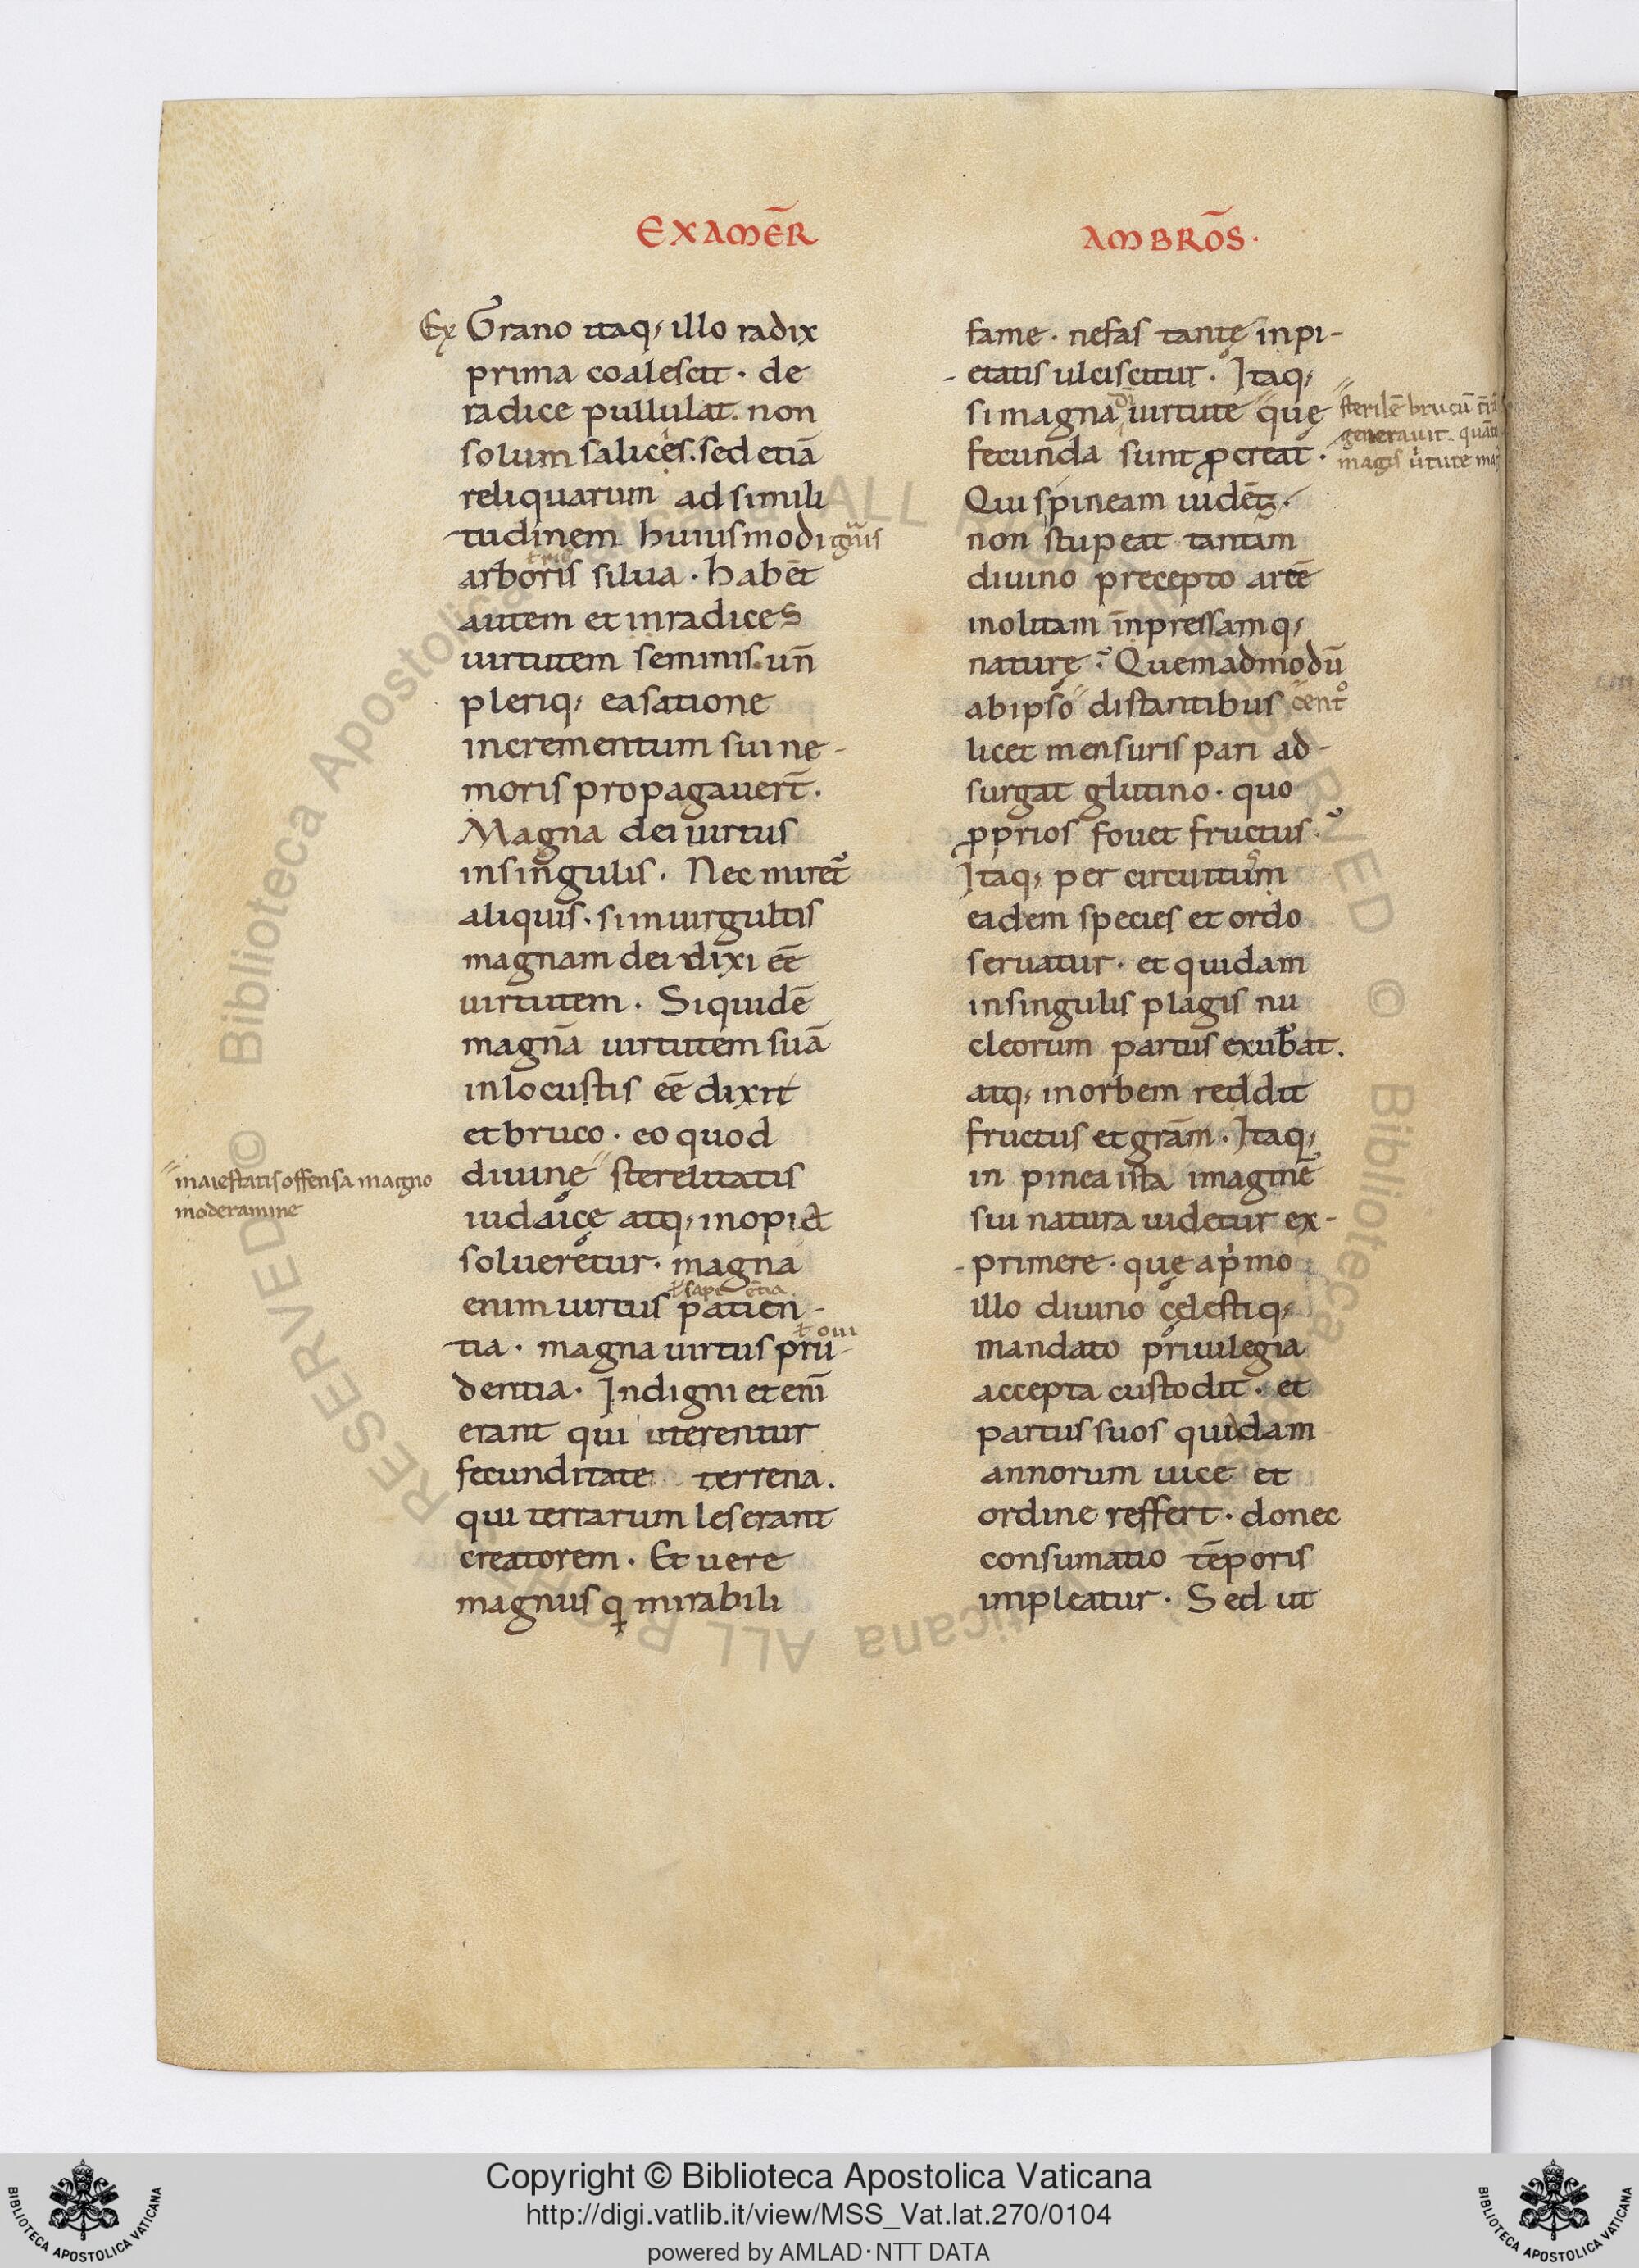 EXAMER̄
AMBRŌS·
Ex Grano itaq; illo radix
prima coalescit · de
radice pullulat. non
solum salices. sed etiā
reliquarum ad simili
tudinem huiusmodi gn̄is
arboris silua · habēt
autem et in radices
uirtutem seminis. un̄
pleriq; ea satione
incrementum sui ne-
moris propagauer̄t.
Magna dei uirtus
in singulis. Nec miret᷑
aliquis. si in uirgultis
magnam dei dixi eē
uirtutem. Siquidē
magnā uirtutem suā
in locustis eē dixit
et bruco · eo quod
maiestatis offensa magno
moderamine
diuinę sterelitatis
iudaicę atq; inopia
solueretur. magna
ł sapietia
enim uirtus patien-
ł oui
tia · magna uirtus pru-
dentia. Indigni eteni̅
erant qui uterentur
fecunditate terrena.
qui terrarum leserant
creatorem. Et uere
magnus q̣ mirabili
fame · nefas tantę inpi-
etatis ulciscitur. Itaq;
si magna dī uirtute quę
sterilē brucū
generauit. quāto
magis ũtute
fecunda sunt ꝓcreat᷑.
Qui spineam uidēs.
non stupeat tantam
diuino precepto artē
inolitam īnpressamq;
naturę? Quemadmodū
ab ipso distantibus cent᷑
licet mensuris pari ad-
surgat glutino · quo
ꝓprios fouet fructus.
Itaq; per circuitum
eadem species et ordo
seruatur · et quidam
in singulis plagis nu
cleorum partus exub̄at.
atq; in orbem reddit
fructus et grām. Itaq;
in pinea ista imaginē
sui natura uidetur ex-
primere · quę a pimo
illo diuino cęlestiq;
mandato priuilegia
accepta custodit · et
partus suos quidam
annorum uice et
ordine reffert · donec
consumatio tēporis
impleatur. Sed ut
Copyright © Biblioteca Apostolica Vaticana
http://digi.vatlib.it/view/MSS_Vat.lat.270/0104
powered by AMLAD·NTT DATA
BIBLIOTECA APOSTOLICA VATICANA
BIBLIOTECA APOSTOLICA VATICANA